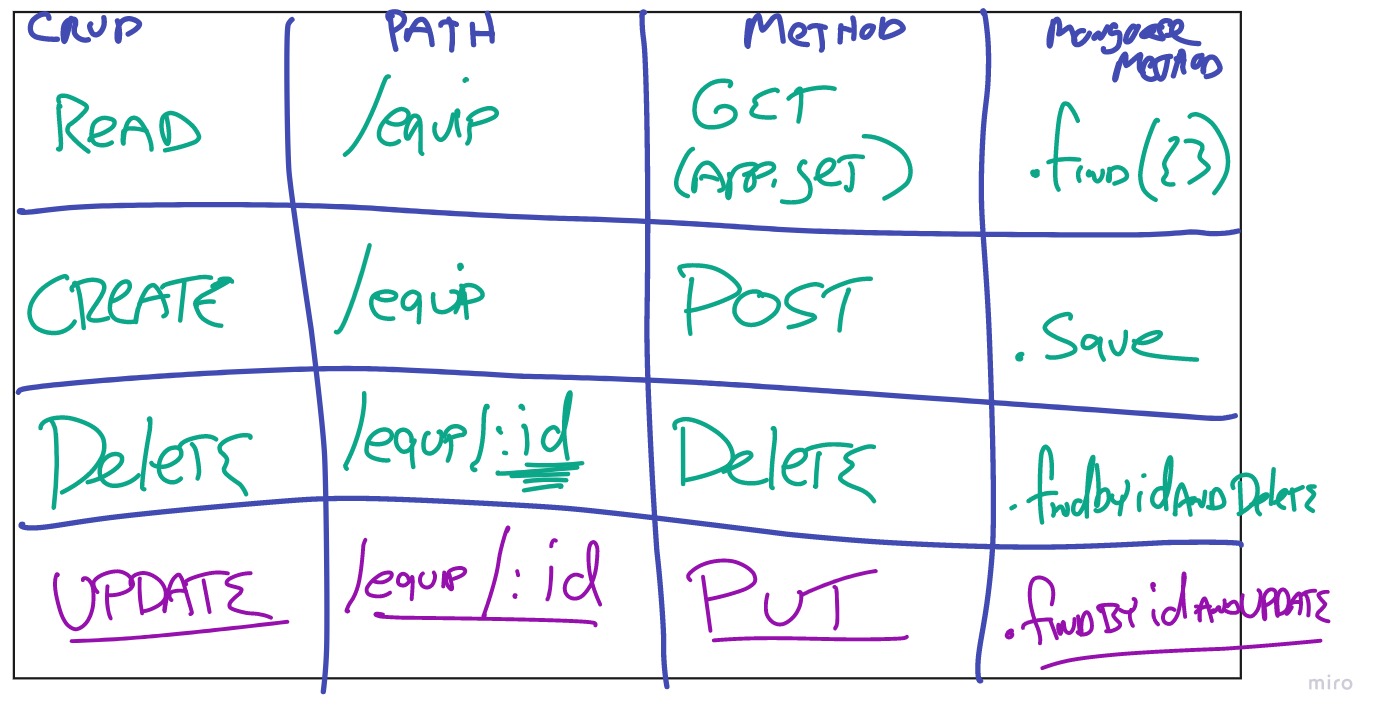 CRUD PATH METHOD Mongoose METHOD
READ /equip GET (App.get) .find({})
CREATE /equip POST .Save
Delete /equip/:id Delete .findbyidAndDelete
UPDATE /equip/:id PUT .findByidAndUPDATE
miro